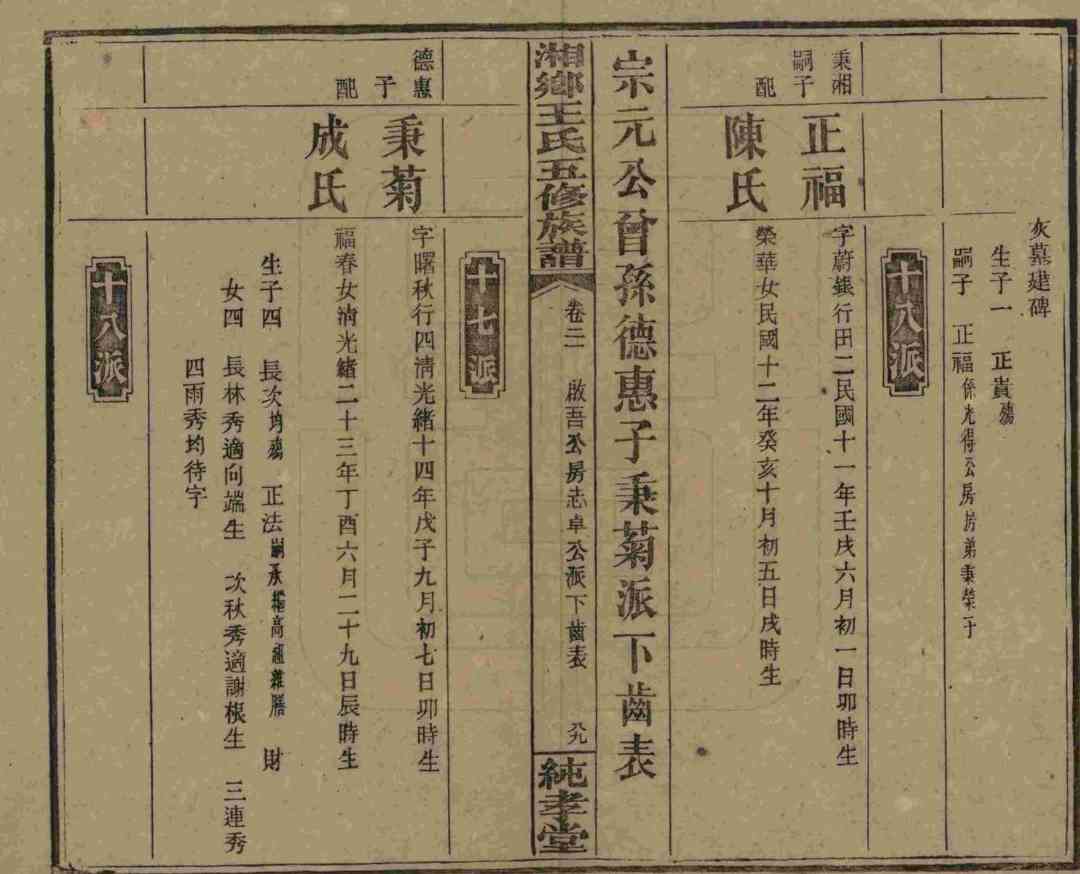 灰墓建碑
生子一 正貴殤
嗣子 正福係光得公房房弟秉榮子
十八派
秉湘嗣子
正福
字蔚銀行田二民國十一年壬戌六月初一日卯時生
配
陳氏
榮華女民國十二年癸亥十月初五日戌時生
宗元公曾孫德惠子秉菊派下齒表
湘鄉王氏五修族譜
卷二 啟吾公房志卓公派下齒表 九
純孝堂
十七派
德惠子
秉菊
字曙秋行四清光緒十四年戊子九月初七日卯時生
配
成氏
福春女清光緒二十三年丁酉六月二十九日辰時生
生子四 長次均殤 正法嗣承 高祖 膳 財
女四 長林秀適向端生 次秋秀適謝根生 三連秀
四雨秀均待字
十八派